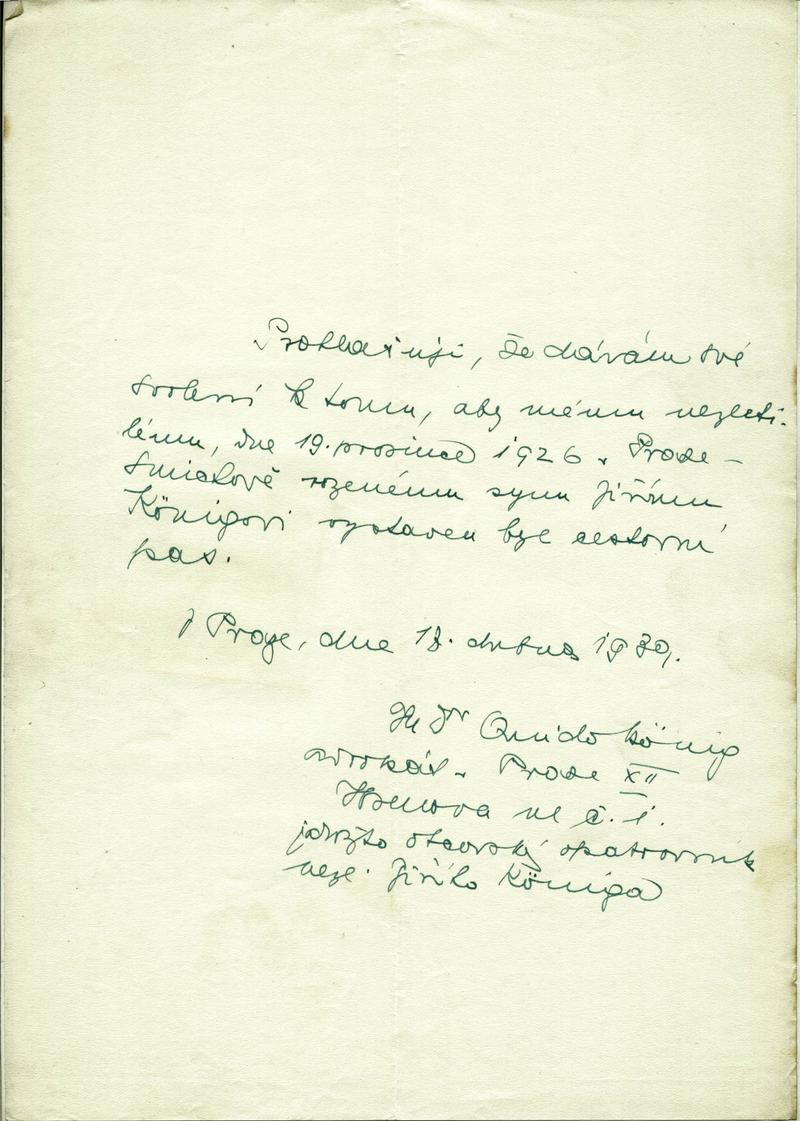 Prohlašuji, že dávám své
svolení k tomu, aby mému nezleti-
lému, dne 19. prosince 1926 v Praze -
Smíchově rozenému synu Jiřímu
Königovi vystaven byl cestovní
pas.
V Praze, dne 18. dubna 1939.
JUDr Quido König
advokát v Praze XII
č. 1.
jakožto otcovský opatrovník
nezl. Jiřího Königa